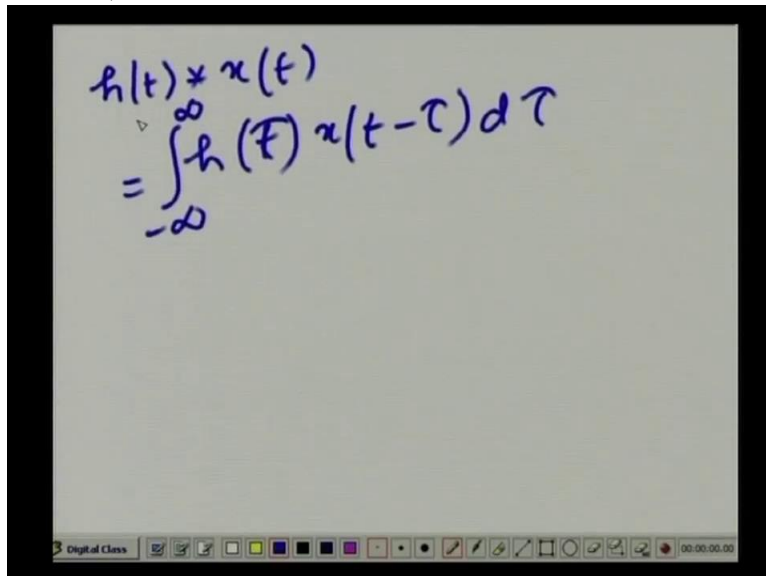 h(t) * x(t)
= ∫_{-∞}^{∞} h(τ) x(t-τ) dτ
Digital Class 00:00:00.00